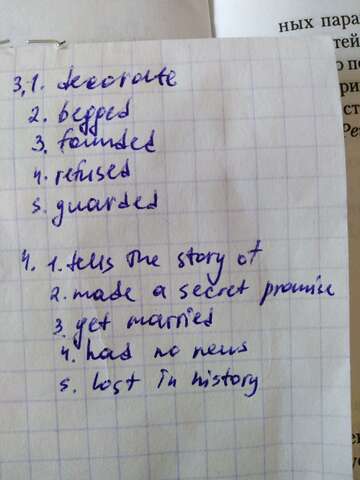 ных пара
тей
о по
ри
ст
Ре
3, 1. decorate
2. begged
3. founded
4. refused
5. guarded
4. 1. tells the story of
2. made a secret promise
3. get married
4. had no news
5. lost in history